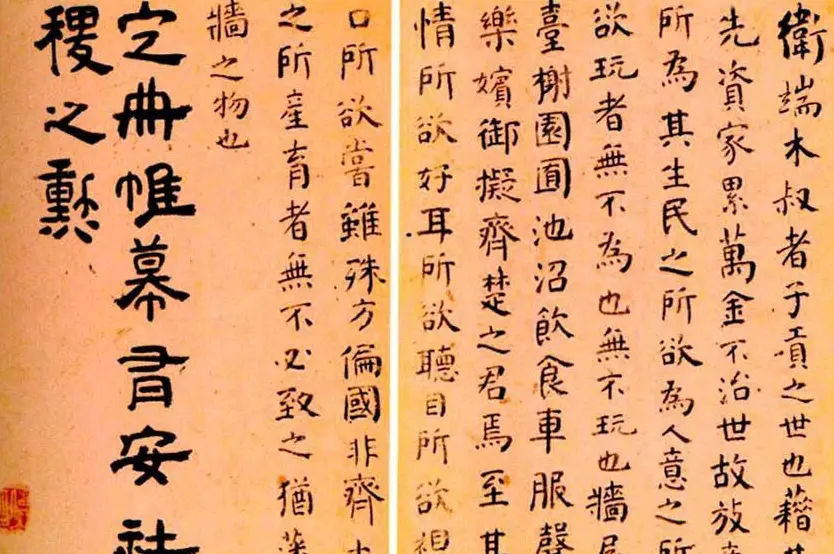 衛端木叔者子貢之世也藉其
先資家累萬金不治世故放
所為其生民之所欲為人意之所
欲玩者無不為也無不玩也牆屋
臺榭園囿池沼飲食車服聲
樂嬪御擬齊楚之君焉至其
情所欲好耳所欲聽目所欲
口所欲嘗雖殊方偏國非齊土
之所產育者無不必致之猶藩
牆之物也
定冊帷幕有安社
稷之勳